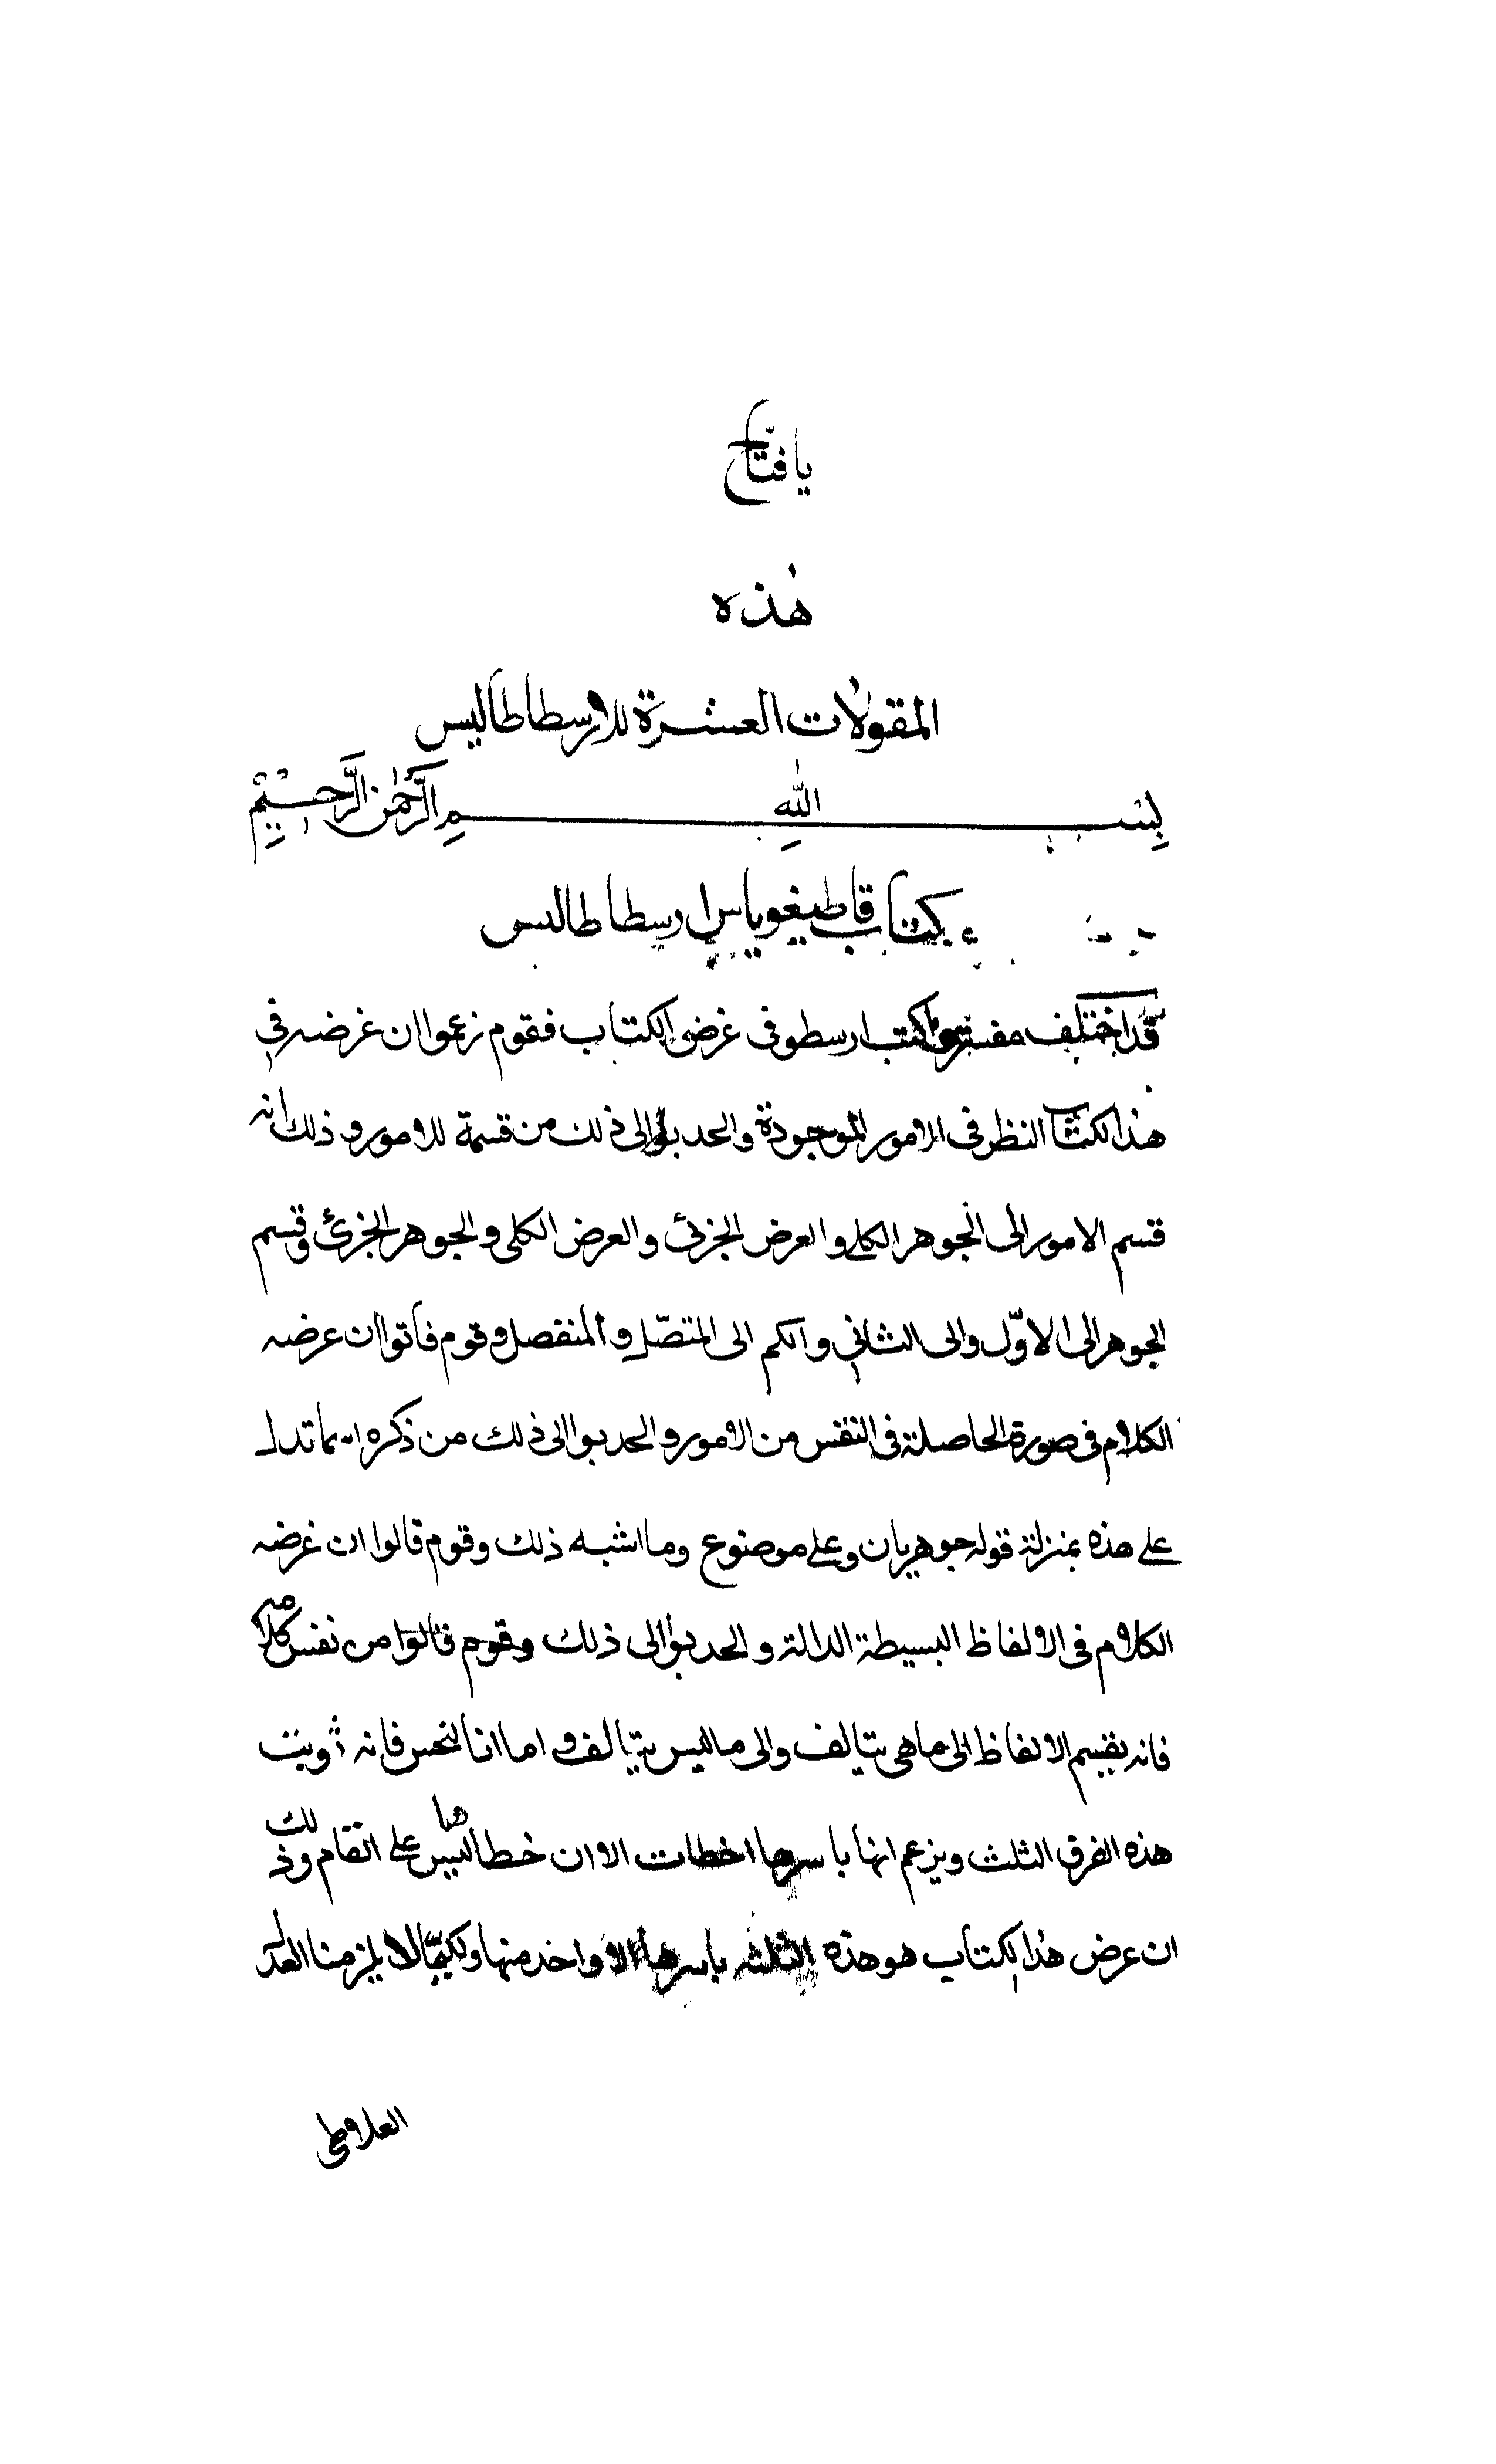 يا فتّاح
هٰذه
المقولات العشرة للارسطاطاليس
بِسْمِ اللهِ الرَّحْمٰنِ الرَّحِيْمِ
كتاب قاطيغورياس ارسطاطاليس
قد اختلف مفسروا كتب ارسطو فى غرض الكتاب فقوم زعموا ان غرضه فى
هذا الكتاب النظر فى الامور الموجودة والحدبوا الى ذلك من قسمة للامور و ذلك انه
قسم الامور الى الجوهر الكلى و العرض الجزئى والعرض الكلى و الجوهر الجزئى وقسم
الجوهر الى الاوّل والى الثانى و الكم الى المتصّل و المنفصل و قوم فاتوا ان عرضه
الكلام فى صورة الحاصلة فى النفس من الامور و الحدبوا الى ذلك من ذكره اسما تدل
على هذه بمنزلة قوله جوهريان و على موضوع وما اشبه ذلك وقوم قالوا ان غرضه
الكلام فى الالفاظ البسيطة الدالة و الحدبوا الى ذلك وقوم قالوا من نفس كلامه
فانه يقسم الالفاظ الى ما هى بتالف والى ما ليس بتالف و اما انا لنحس فانه
هذه الفرق الثلث ويزعم انها باسرها اخطات الا ان خطا ليس هنا على التمام وذلك
ان عرض هذا الكتاب هو هذه الثلثة باسرها الا واحد منها ولكيمّا لا يلزمنا العدل